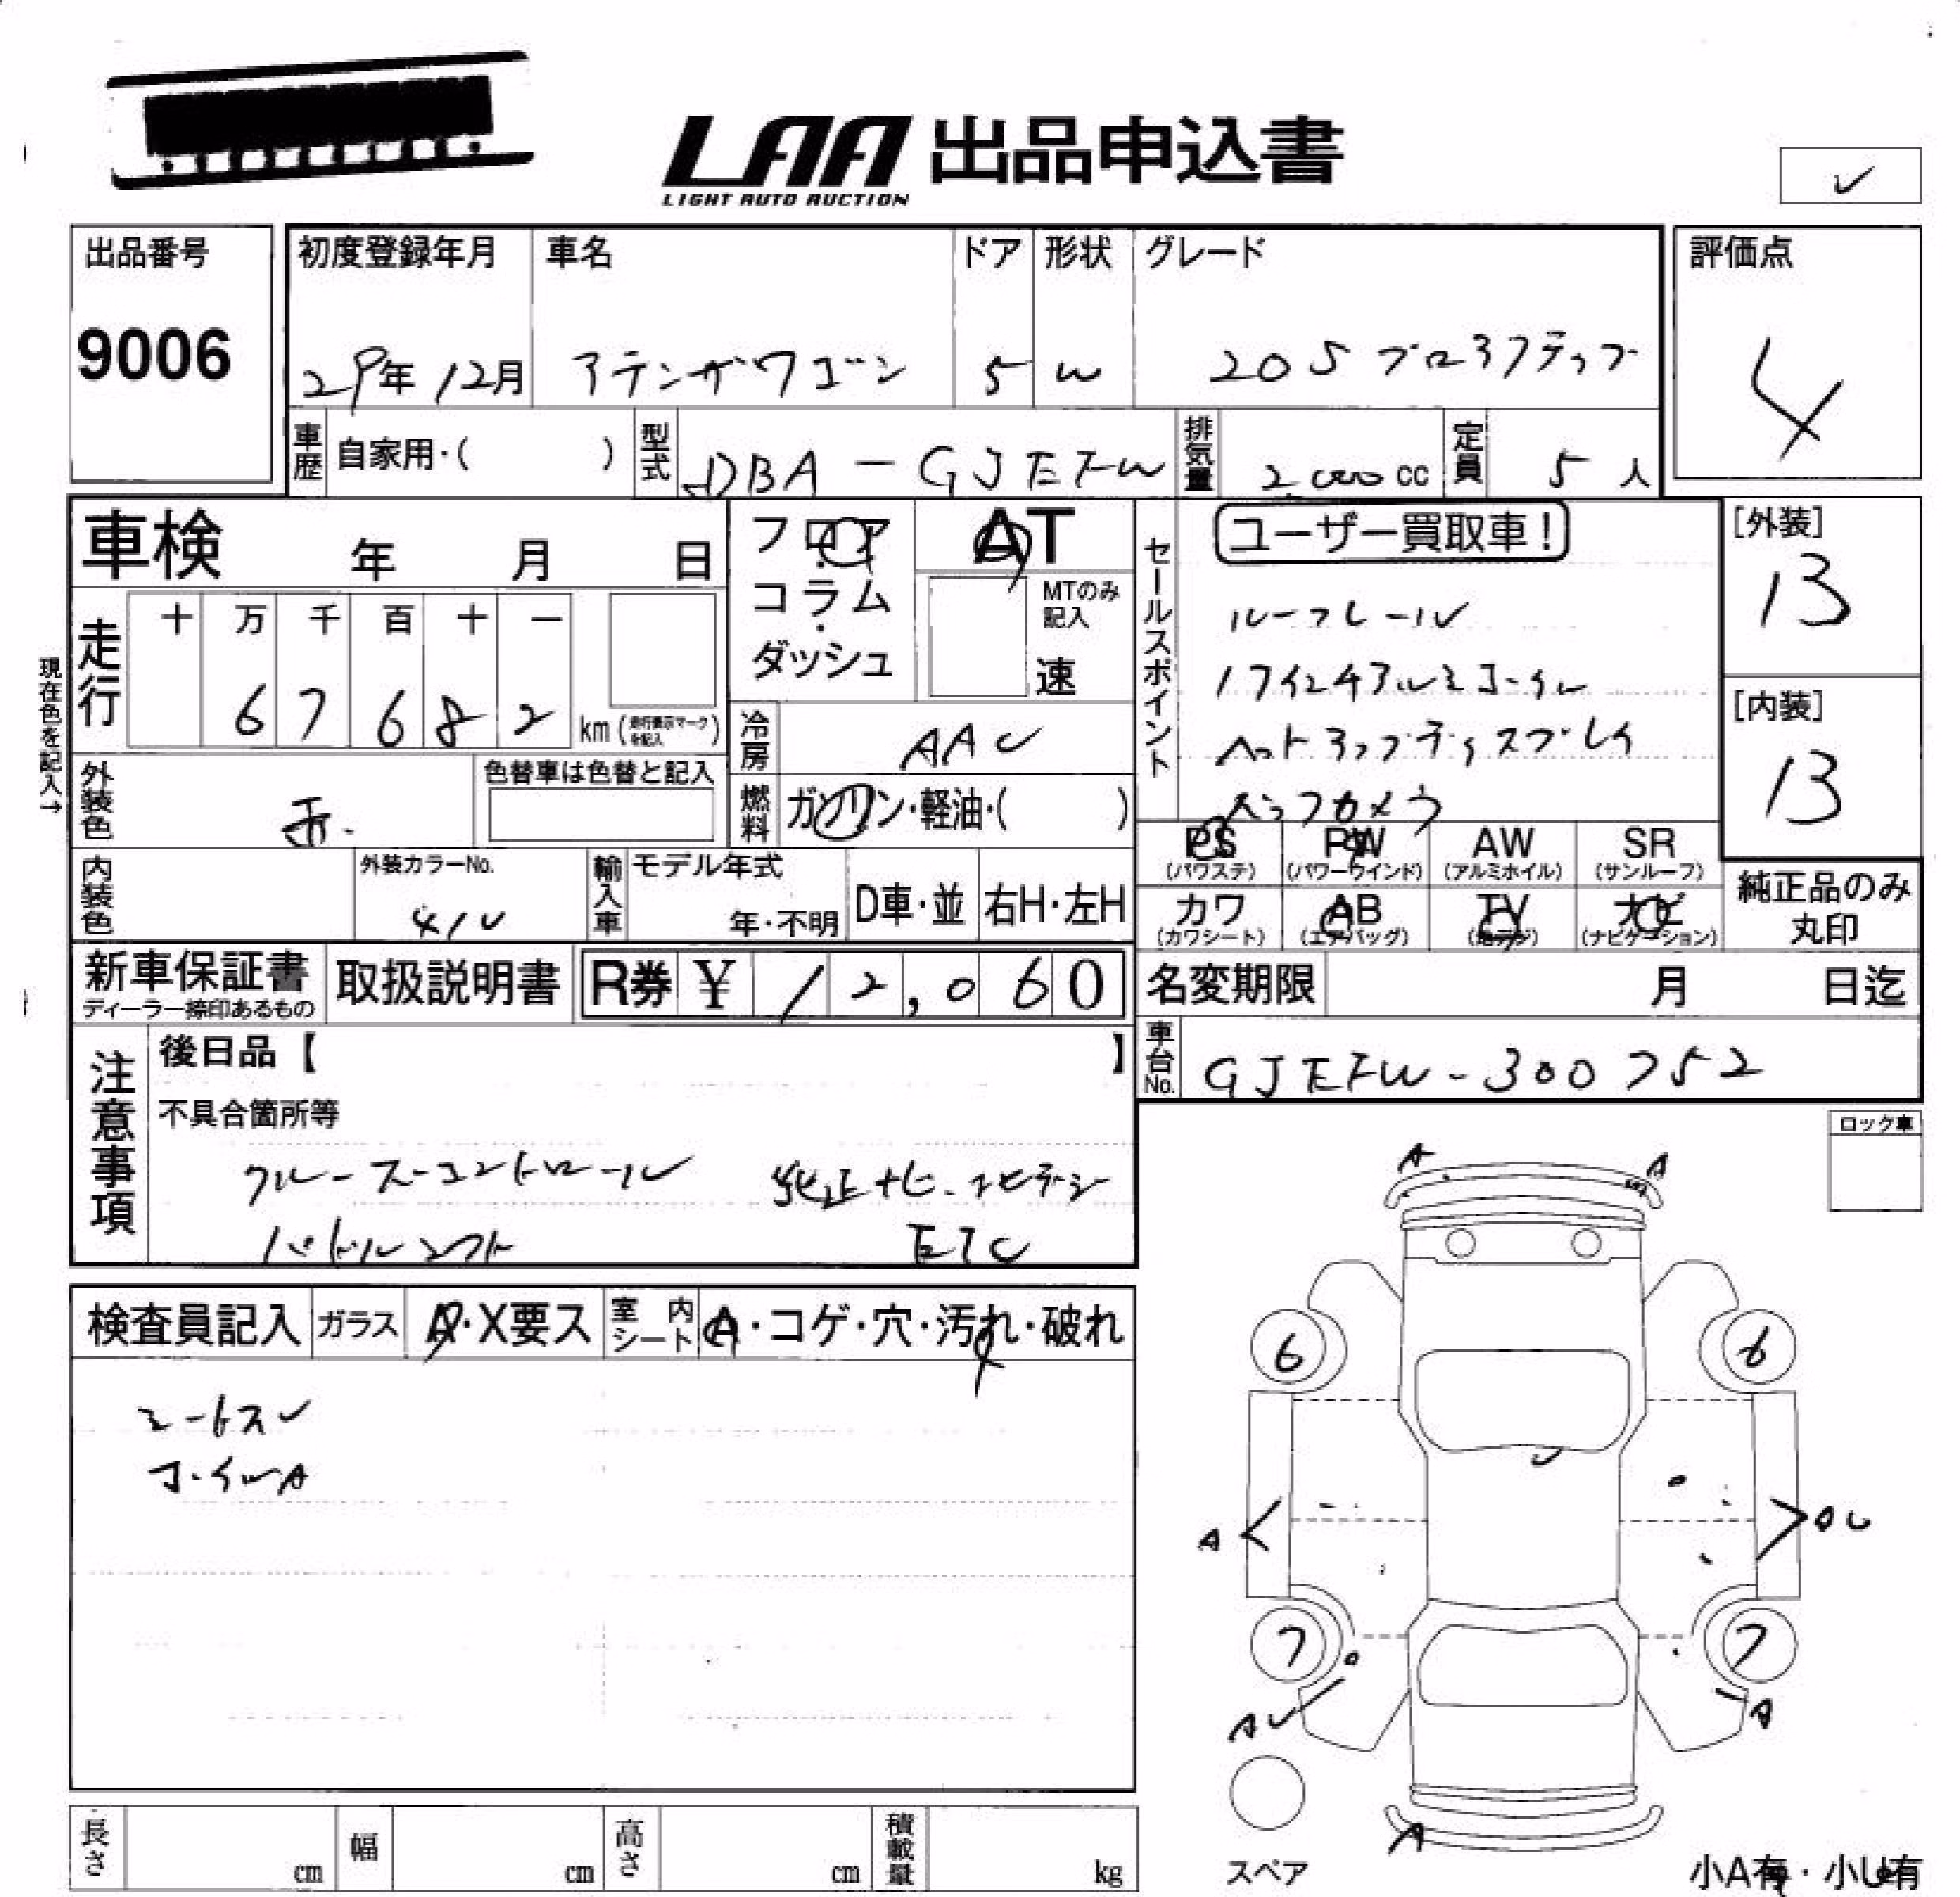 LAA 出品申込書
LIGHT AUTO AUCTION
出品番号
9006
初度登録年月
29年 12月
車名
アテンザワゴン
ドア
5
形状
W
グレード
20S プロアクティブ
評価点
4
車歴 自家用・( )
型式 DBA-GJEFW
排気量 2000 cc
定員 5 人
車検 年 月 日
フロア・コラム・ダッシュ
AT
MTのみ記入
速
セールスポイント
ユーザー買取車!
ルーフレール
17インチアルミホイル
ヘットアップディスプレイ
バックカメラ
[外装]
13
[内装]
13
現在色を記入→
走行 十 万 千 百 十 一
6 7 6 8 2 km (走行表示マークを記入)
冷房 AAC
燃料 ガソリン・軽油・( )
外装色 赤.
色替車は色替と記入
内装色
外装カラーNo.
41V
輸入車 モデル年式
年・不明
D車・並 右H・左H
PS (パワステ)
PW (パワーウインド)
AW (アルミホイル)
SR (サンルーフ)
カワ (カワシート)
AB (エアバッグ)
TV (地デジ)
ナビ (ナビゲーション)
純正品のみ丸印
新車保証書
ディーラー捺印あるもの
取扱説明書
R券 ¥ 12,060
名変期限 月 日迄
車台No. GJEFW-300752
注意事項
後日品【 】
不具合箇所等
クルーズコントロール 純正ナビ.フルセグTV
パドルシフト ETC
ロック車
検査員記入 ガラス A・X要ス 室内シート A・コゲ・穴・汚れ・破れ
シートスレ
ホイルA
A A
6 6
A AU
7 7
AU A
A
スペア
小A有・小U有
長さ cm 幅 cm 高さ cm 積載量 kg